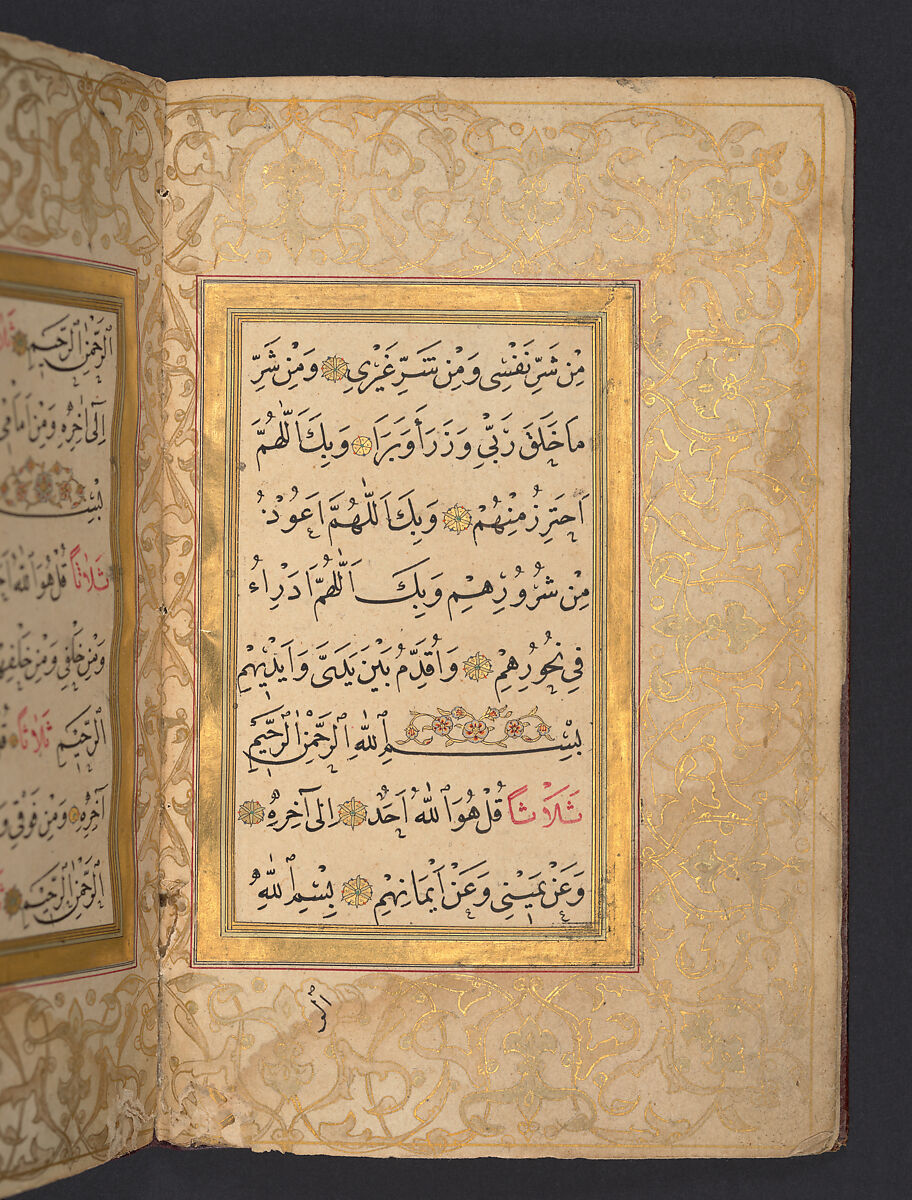 مِنْ شَرِّ نَفْسِى وَمِنْ شَرِّ غَيْرِى وَمِنْ شَرِّ
مَا خَلَقَ رَبِّى وَذَرَأَ وَبَرَأَ وَبِكَ اَللّٰهُمَّ
اَحْتَرِزُ مِنْهُمْ وَبِكَ اَللّٰهُمَّ اَعُوْذُ
مِنْ شُرُوْرِهِمْ وَبِكَ اَللّٰهُمَّ اَدْرَاءُ
فِى نُحُوْرِهِمْ وَاُقَدِّمُ بَيْنَ يَدَىَّ وَاَيْدِيْهِمْ
بِسْمِ اللّٰهِ الرَّحْمٰنِ الرَّحِيْمِ
ثَلَاثًا قُلْ هُوَ اللّٰهُ اَحَدٌ اِلٰى آخِرِهٖ
وَعَنْ يَمِيْنِى وَعَنْ اَيْمَانِهِمْ بِسْمِ اللّٰهِ
الر
الرَّحْمٰنِ الرَّحِيْمِ
اِلٰى اٰخِرِهٖ وَمِنْ اَمَامِى
بِسْـ
ثَلَاثًا قُلْ هُوَ اللّٰهُ
وَمِنْ خَلْفِى وَمِنْ خَلْفِهِمْ
الرَّحِيْمِ ثَلَاثًا
اٰخِرِهٖ وَمِنْ فَوْقِى
الرَّحْمٰنِ الرَّحِيْمِ